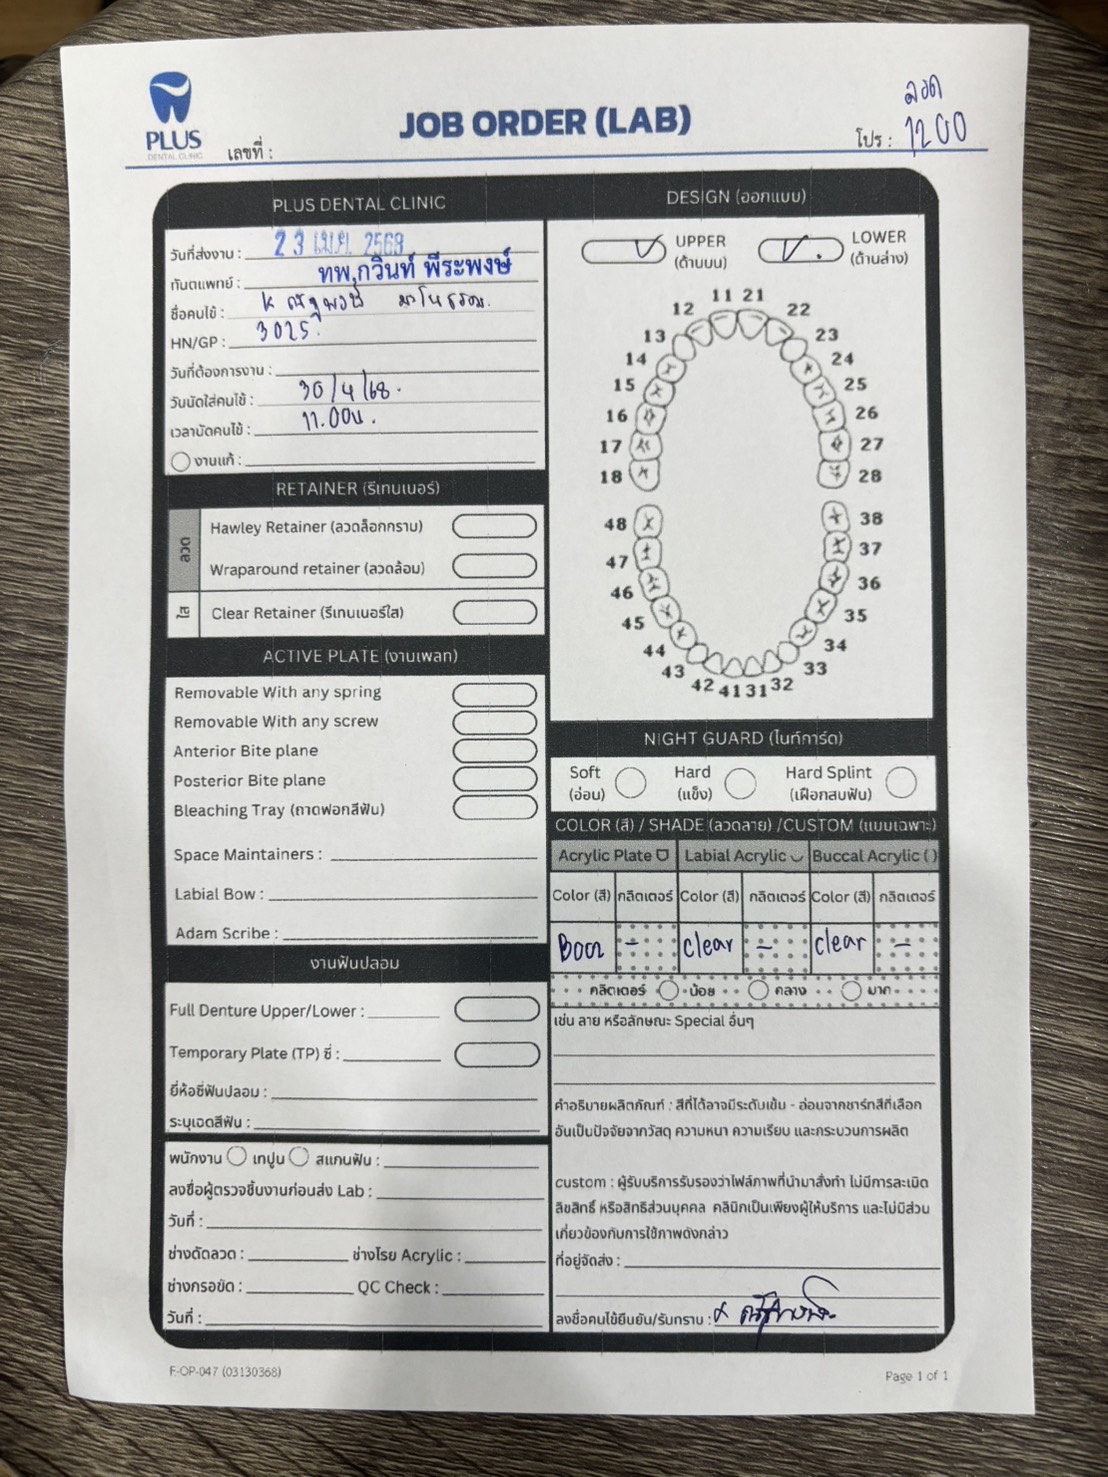 PLUS
DENTAL CLINIC
เลขที่ :
JOB ORDER (LAB)
ลวด
โปร : 1200
PLUS DENTAL CLINIC
วันที่ส่งงาน : 23 เม.ย. 2568
ทันตแพทย์ : ทพ.กวินท์ พีระพงษ์
ชื่อคนไข้ :
HN/GP : 3025
วันที่ต้องการงาน :
วันนัดใส่คนไข้ : 30/4/68.
เวลานัดคนไข้ : 11.00น.
งานแก้ :
RETAINER (รีเทนเนอร์)
ลวด
Hawley Retainer (ลวดล็อกกราม)
Wraparound retainer (ลวดล้อม)
ใส
Clear Retainer (รีเทนเนอร์ใส)
ACTIVE PLATE (งานเพลท)
Removable With any spring
Removable With any screw
Anterior Bite plane
Posterior Bite plane
Bleaching Tray (ถาดฟอกสีฟัน)
Space Maintainers :
Labial Bow :
Adam Scribe :
งานฟันปลอม
Full Denture Upper/Lower :
Temporary Plate (TP) ซี่ :
ยี่ห้อซี่ฟันปลอม :
ระบุเฉดสีฟัน :
พนักงาน เทปูน สแกนฟัน :
ลงชื่อผู้ตรวจชิ้นงานก่อนส่ง Lab :
วันที่ :
ช่างดัดลวด : ช่างโรย Acrylic :
ช่างกรอขัด : QC Check :
วันที่ :
DESIGN (ออกแบบ)
UPPER
(ด้านบน)
LOWER
(ด้านล่าง)
11 21
12 22
13 23
14 24
15 25
16 26
17 27
18 28
48 38
47 37
46 36
45 35
44 34
43 33
42 41 31 32
NIGHT GUARD (ไนท์การ์ด)
Soft
(อ่อน)
Hard
(แข็ง)
Hard Splint
(เฝือกสบฟัน)
COLOR (สี) / SHADE (ลวดลาย) /CUSTOM (แบบเฉพาะ)
Acrylic Plate Labial Acrylic Buccal Acrylic ( )
Color (สี) กลิตเตอร์ Color (สี) กลิตเตอร์ Color (สี) กลิตเตอร์
- clear - clear -
กลิตเตอร์ น้อย กลาง มาก
เช่น ลาย หรือลักษณะ Special อื่นๆ
คำอธิบายผลิตภัณฑ์ : สีที่ได้อาจมีระดับเข้ม - อ่อนจากชาร์ทสีที่เลือก
อันเป็นปัจจัยจากวัสดุ ความหนา ความเรียบ และกระบวนการผลิต
custom : ผู้รับบริการรับรองว่าไฟล์ภาพที่นำมาสั่งทำ ไม่มีการละเมิด
ลิขสิทธิ์ หรือสิทธิส่วนบุคคล คลินิกเป็นเพียงผู้ให้บริการ และไม่มีส่วน
เกี่ยวข้องกับการใช้ภาพดังกล่าว
ที่อยู่จัดส่ง :
ลงชื่อคนไข้ยืนยัน/รับทราบ :
F-OP-047 (03130368)
Page 1 of 1